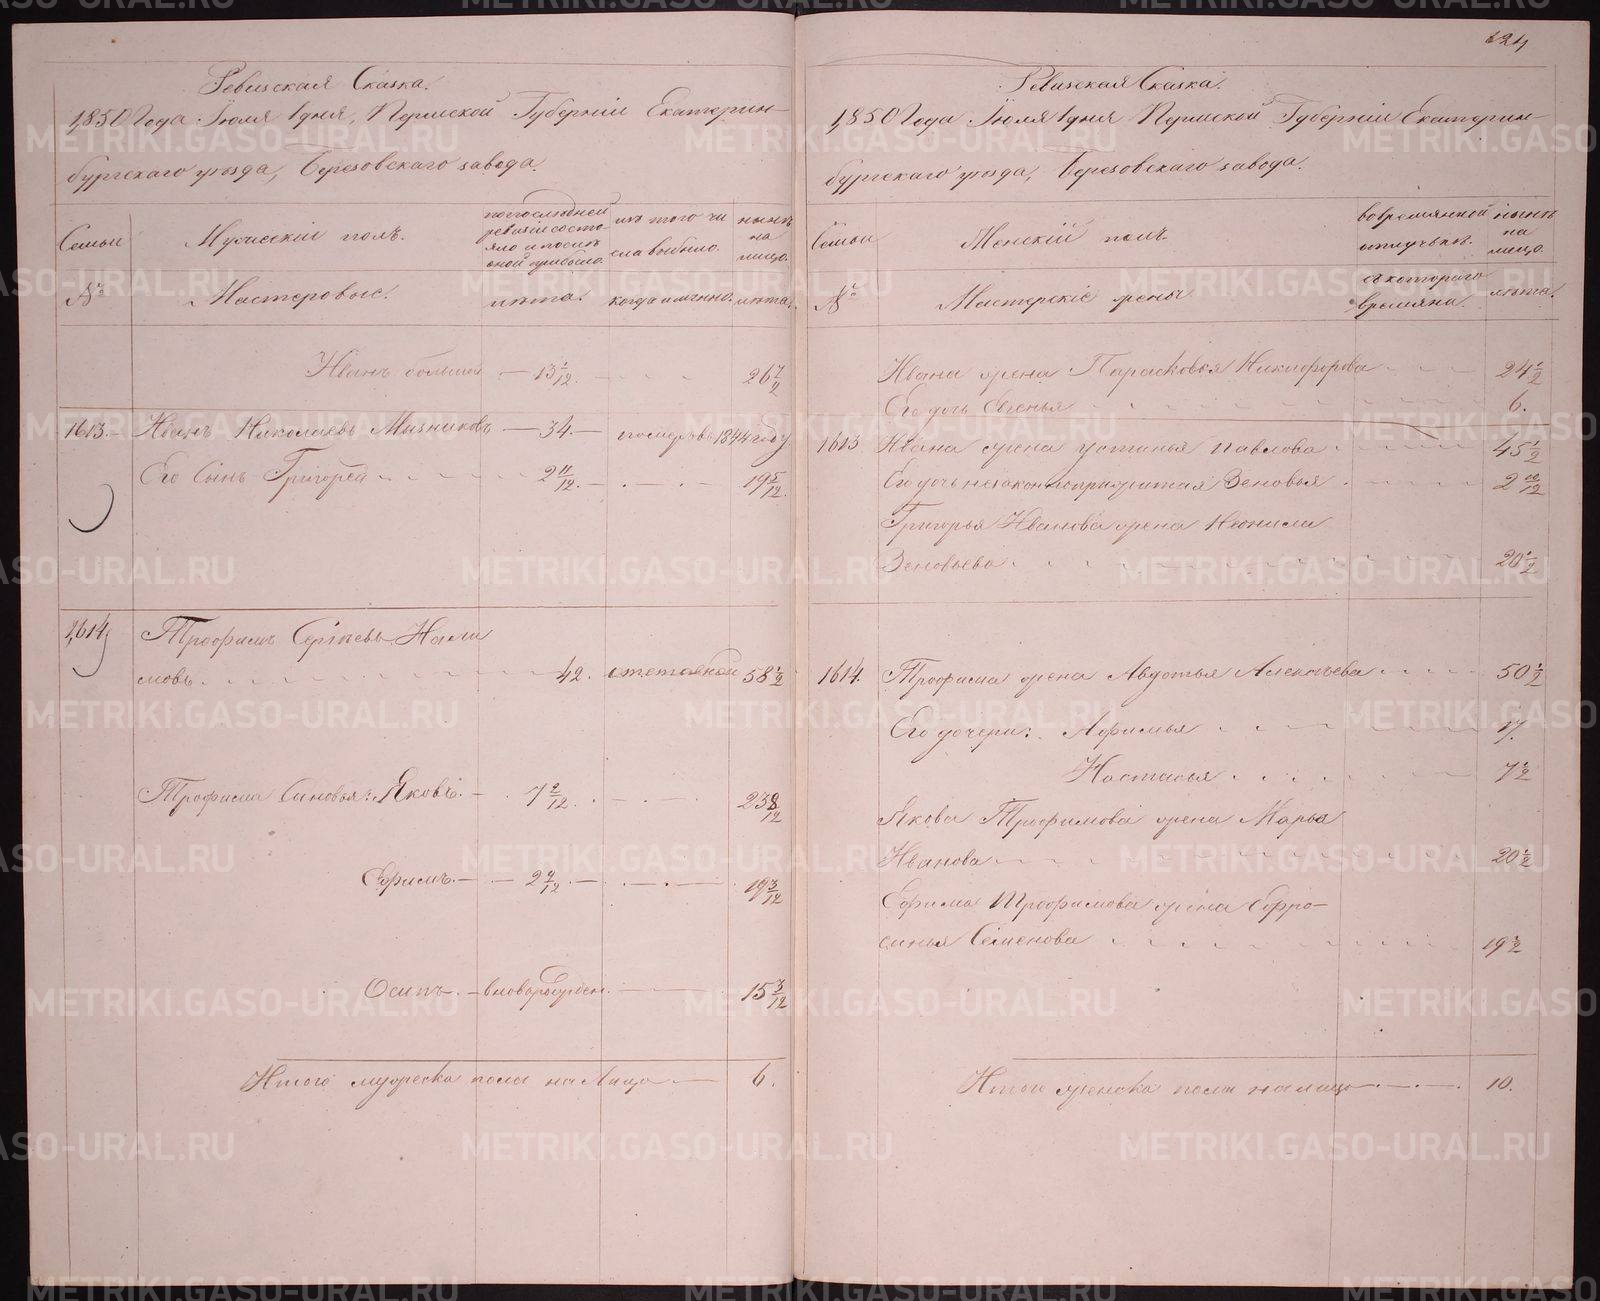 Ревизская Сказка.
1850 Года Июля 1 дня, Пермской Губернiи Екатерин-
бургскаго уезда, Березовскаго завода.
Семьи
Мужескiй полъ.
по последней
ревизiи состо-
яло и после
оной прибыло.
изъ того чи
сла выбыло.
ныне
на
лицо.
№
Мастеровые.
лета.
когда имянно.
лета.
Иванъ большей — 13 1/12. 26 1/2
1613. Иванъ Николаевъ Мизниковъ — 34. — померъ въ 1844 году
Его Сынъ Григорей 2 11/12. 19 5/12.
1614
Трофимъ Сергеевъ
мовъ. 42. отставной 58 1/2
Трофима Сыновья: Яковъ. — 7 2/12. 23 8/12
Ефимъ. — 2 7/12. 19 3/12
Осипъ. — вноворожден. 15 3/12
Итого мужеска пола на Лицо — 6.
624
Ревизская Сказка.
1850 Года Июля 1 дня Пермской Губернiи Екатерин-
бургскаго уезда, Березовскаго завода.
Семьи
Женскiй полъ.
во временной
отлучке.
ныне
на
лицо
№
Мастерскiе жены
съ котораго
времяни.
лета.
Ивана жена Парасковья Никифорова 24 1/2
Его дочь Евгенья 6.
1613 Ивана жена Устинья Павлова 45 1/2
Его дочь незаконноприжитая Зеновья 2 10/12
Григорья Иванова жена Неонила
Зеновьева 20 1/2
1614. Трофима жена Авдотья Алексеева 50 1/2
Его дочери: Афимья 17.
Настасья 7 1/2
Якова Трофимова жена Марья
Иванова 20 1/2
Ефима Трофимова жена Ефро-
синья Семенова 19 1/2
Итого женска пола на лицо 10.
METRIKI.GASO-URAL.RU